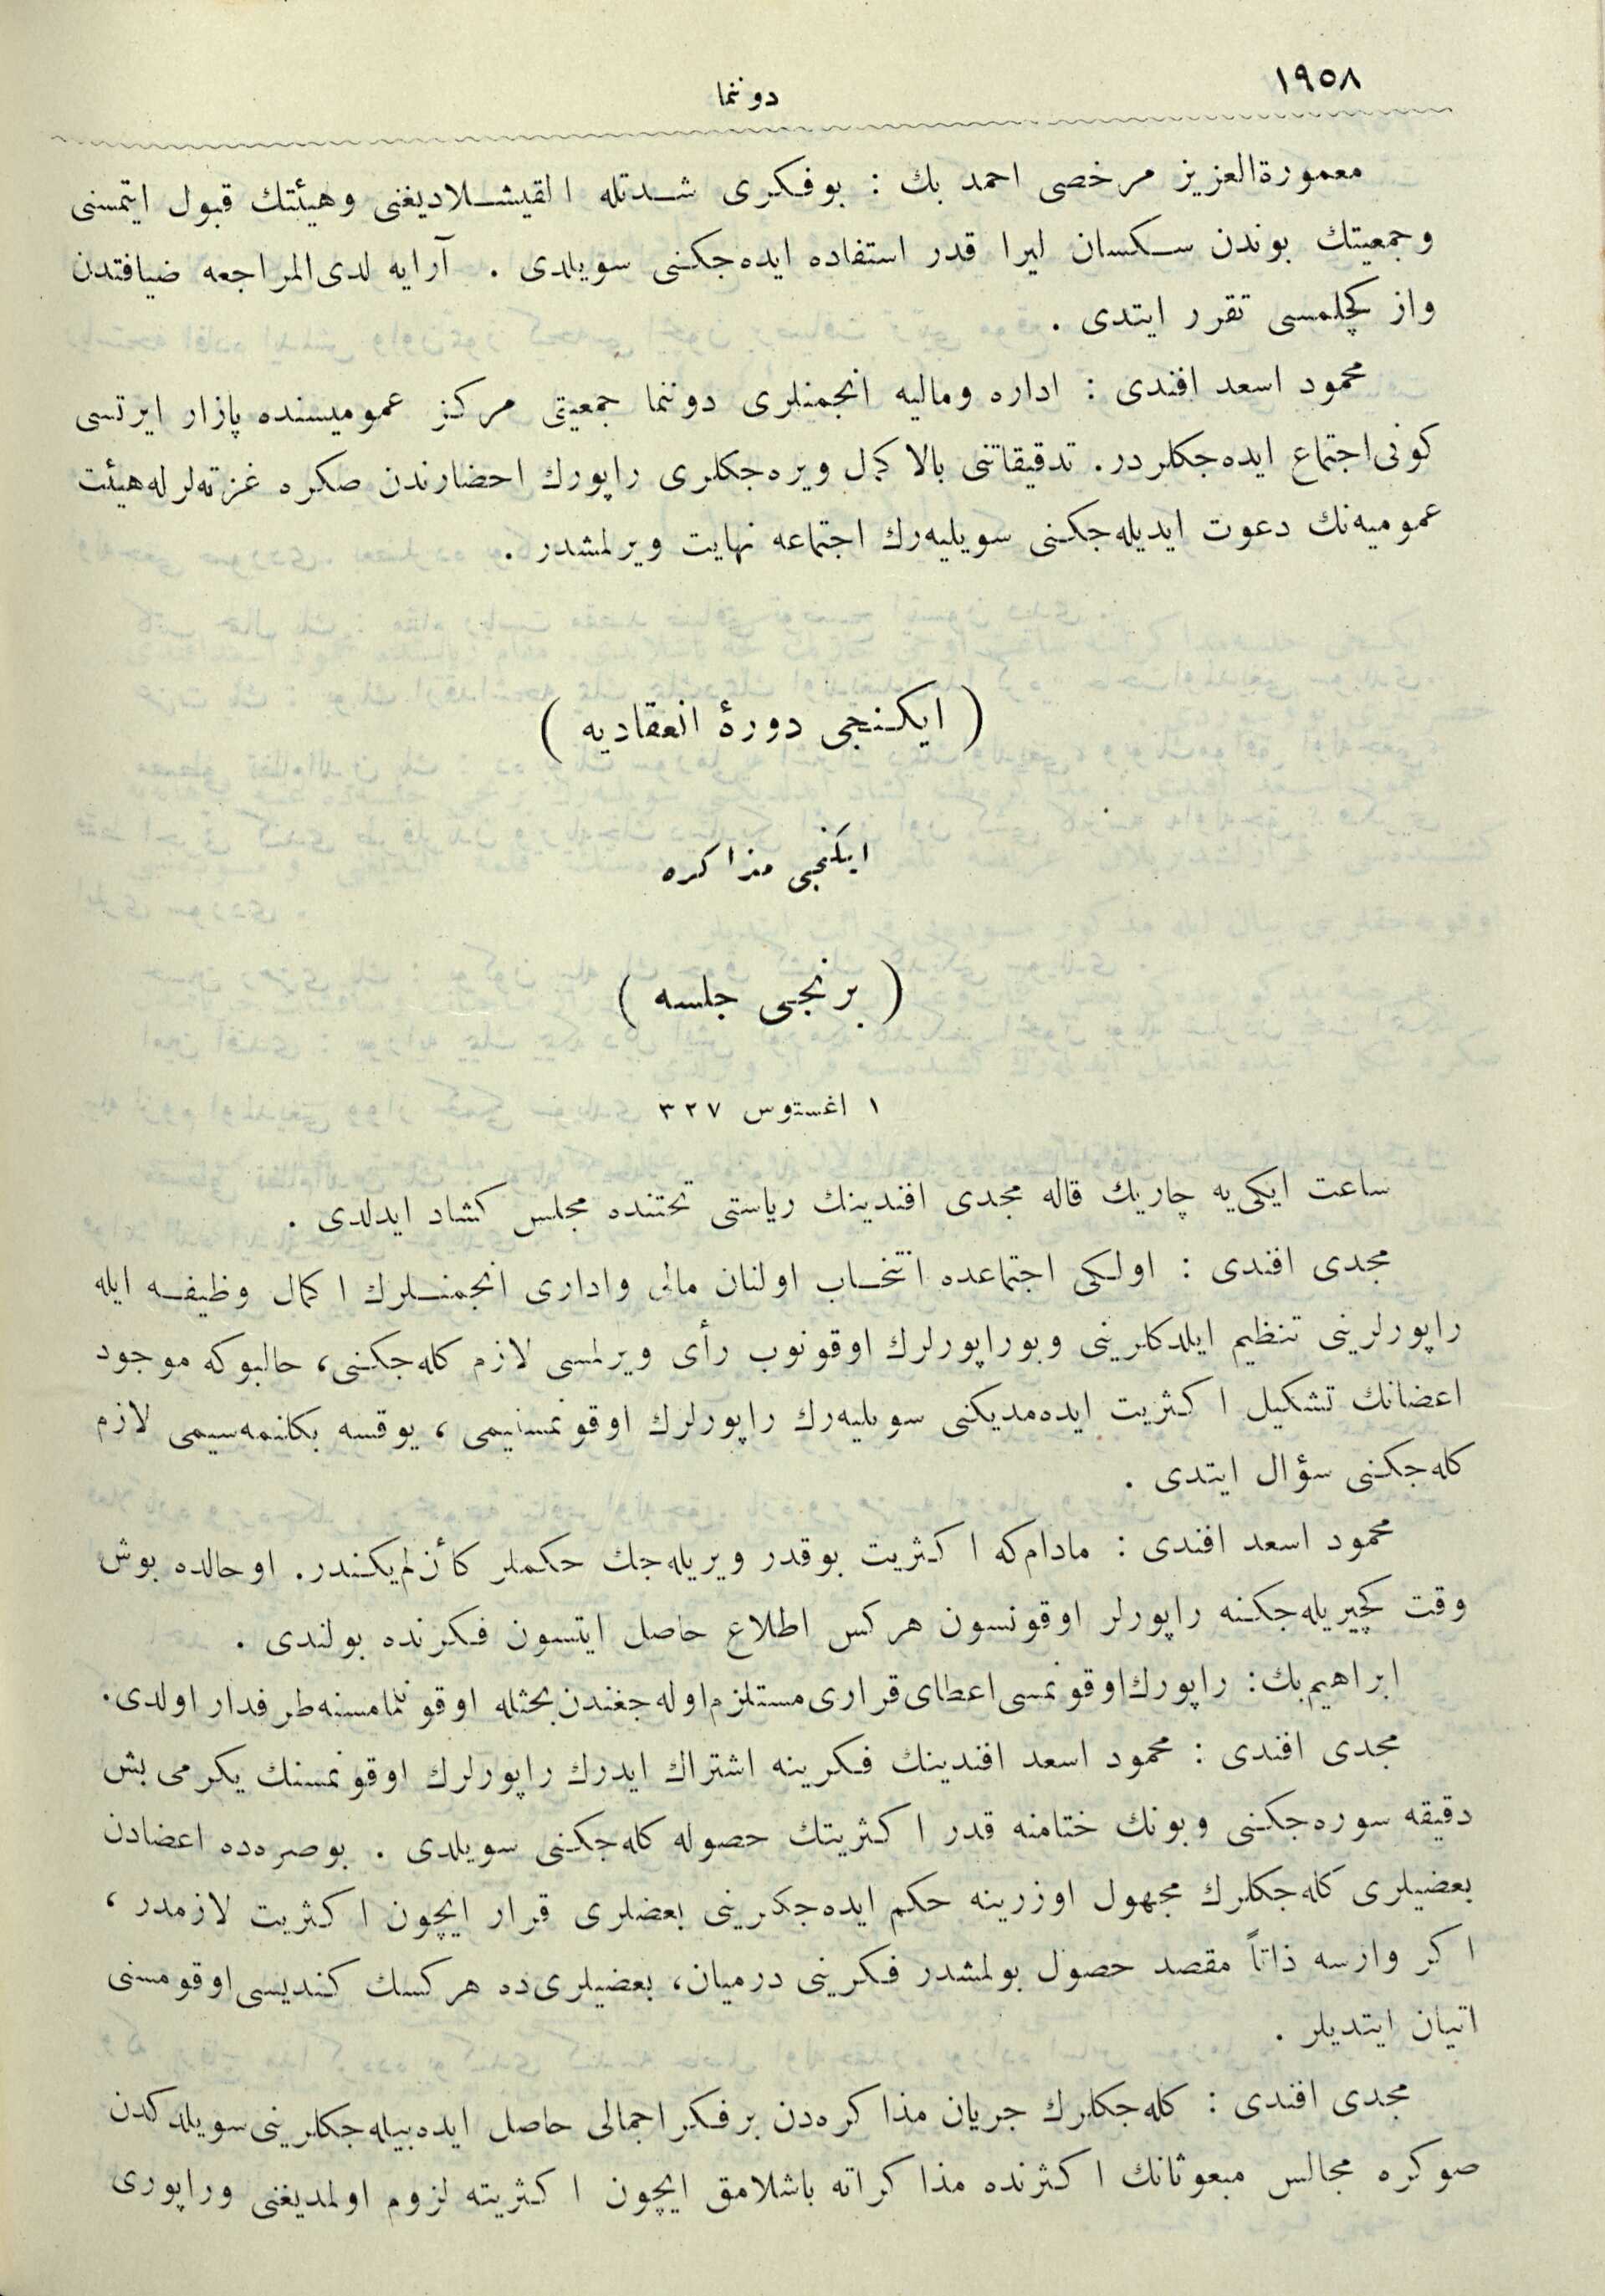 ١٩٥٨
دوننما
معمورةالعزيز مرخصی احمد بك : بوفكری شـدتله القیشـلادیغنی وهیئتك قبول ایتمسنی
وجمعیتك بوندن سـكسان لیرا قدر استفاده ایده‌جكنی سویلدی . آرایه لدی‌المراجعه ضیافتدن
واز كچلمسی تقرر ایتدی .
محمود اسعد افندی : اداره ومالیه انجمنلری دوننما جمعیتی مركز عمومیسنده پازار ایرتسی
كونی‌اجتماع ایده‌جكلردر. تدقیقاتنی بالاكمل ویره‌جكلری راپورك احضارندن صكره غزته‌لرله‌هیئت
عمومیه‌نك دعوت ایدیله‌جكنی سویلیه‌رك اجتماعه نهایت ویرلمشدر .
( ایكـنجی دورهٔ انعقادیه )
ایكنجی مذاكره
( برنجی جلسه )
١ اغستوس ٣٢٧
ساعت ایكی‌یه چاریك قاله مجدی افندینك ریاستی تحتنده مجلس كشاد ایدلدی .
مجدی افندی : اولـكی اجتماعده انتخـاب اولنان مالی واداری انجمنـلرك اكمال وظیفـه ایله
راپورلرینی تنظیم ایلدكلرینی وبوراپورلرك اوقونوب رأی ویرلمسی لازم كله‌جكـنی، حالبوكه موجود
اعضانك تشكیل اكثریت ایده‌مدیكنی سویلیه‌رك راپورلرك اوقونمسنیمی ، یوقسه بكلنمه‌سیمی لازم
كله‌جكنی سؤال ایتدی .
محمود اسعد افندی : مادام‌كه اكثریت بوقدر ویریله‌جك حكملر كأن‌لم‌یكندر. اوحالده بوش
وقت كچیریله‌جكـنه راپورلر اوقونسون هركس اطلاع حاصل ایتسون فـكرنده بولندی .
ابراهیم‌بك: راپورك‌اوقونمسی‌اعطای‌قراری‌مستلزم‌اوله‌جغندن‌بحثله اوقونمامسنه‌طرفدار اولدی.
مجدی افندی : محمود اسعد افندینك فـكرینه اشتراك ایدرك راپورلرك اوقونمسنك یكرمی بش
دقیقه سوره‌جكـنی وبونك ختامنه قدر اكثریتك حصوله كله‌جكـنی سویلدی . بوصره‌ده اعضادن
بعضیلری كله‌جكلرك مجهول اوزرینه حكم ایده‌جكرینی بعضلری قرار ایچون اكثریت لازمدر ،
اكر وارسه ذاتاً مقصد حصول بولمشدر فـكرینی درمیان، بعضیلری‌ده هركسك كندیسی‌اوقومسنی
اتیان ایتدیلر .
مجدی افندی : كله‌جكلرك جریان مذاكره‌دن برفـكر اجمالی حاصل ایده‌بیله‌جكلرینی‌سویلدكدن
صوكره مجالس مبعوثانك اكثرنده مذاكراته باشلامق ایچون اكثریته لزوم اولمدیغنی وراپوری